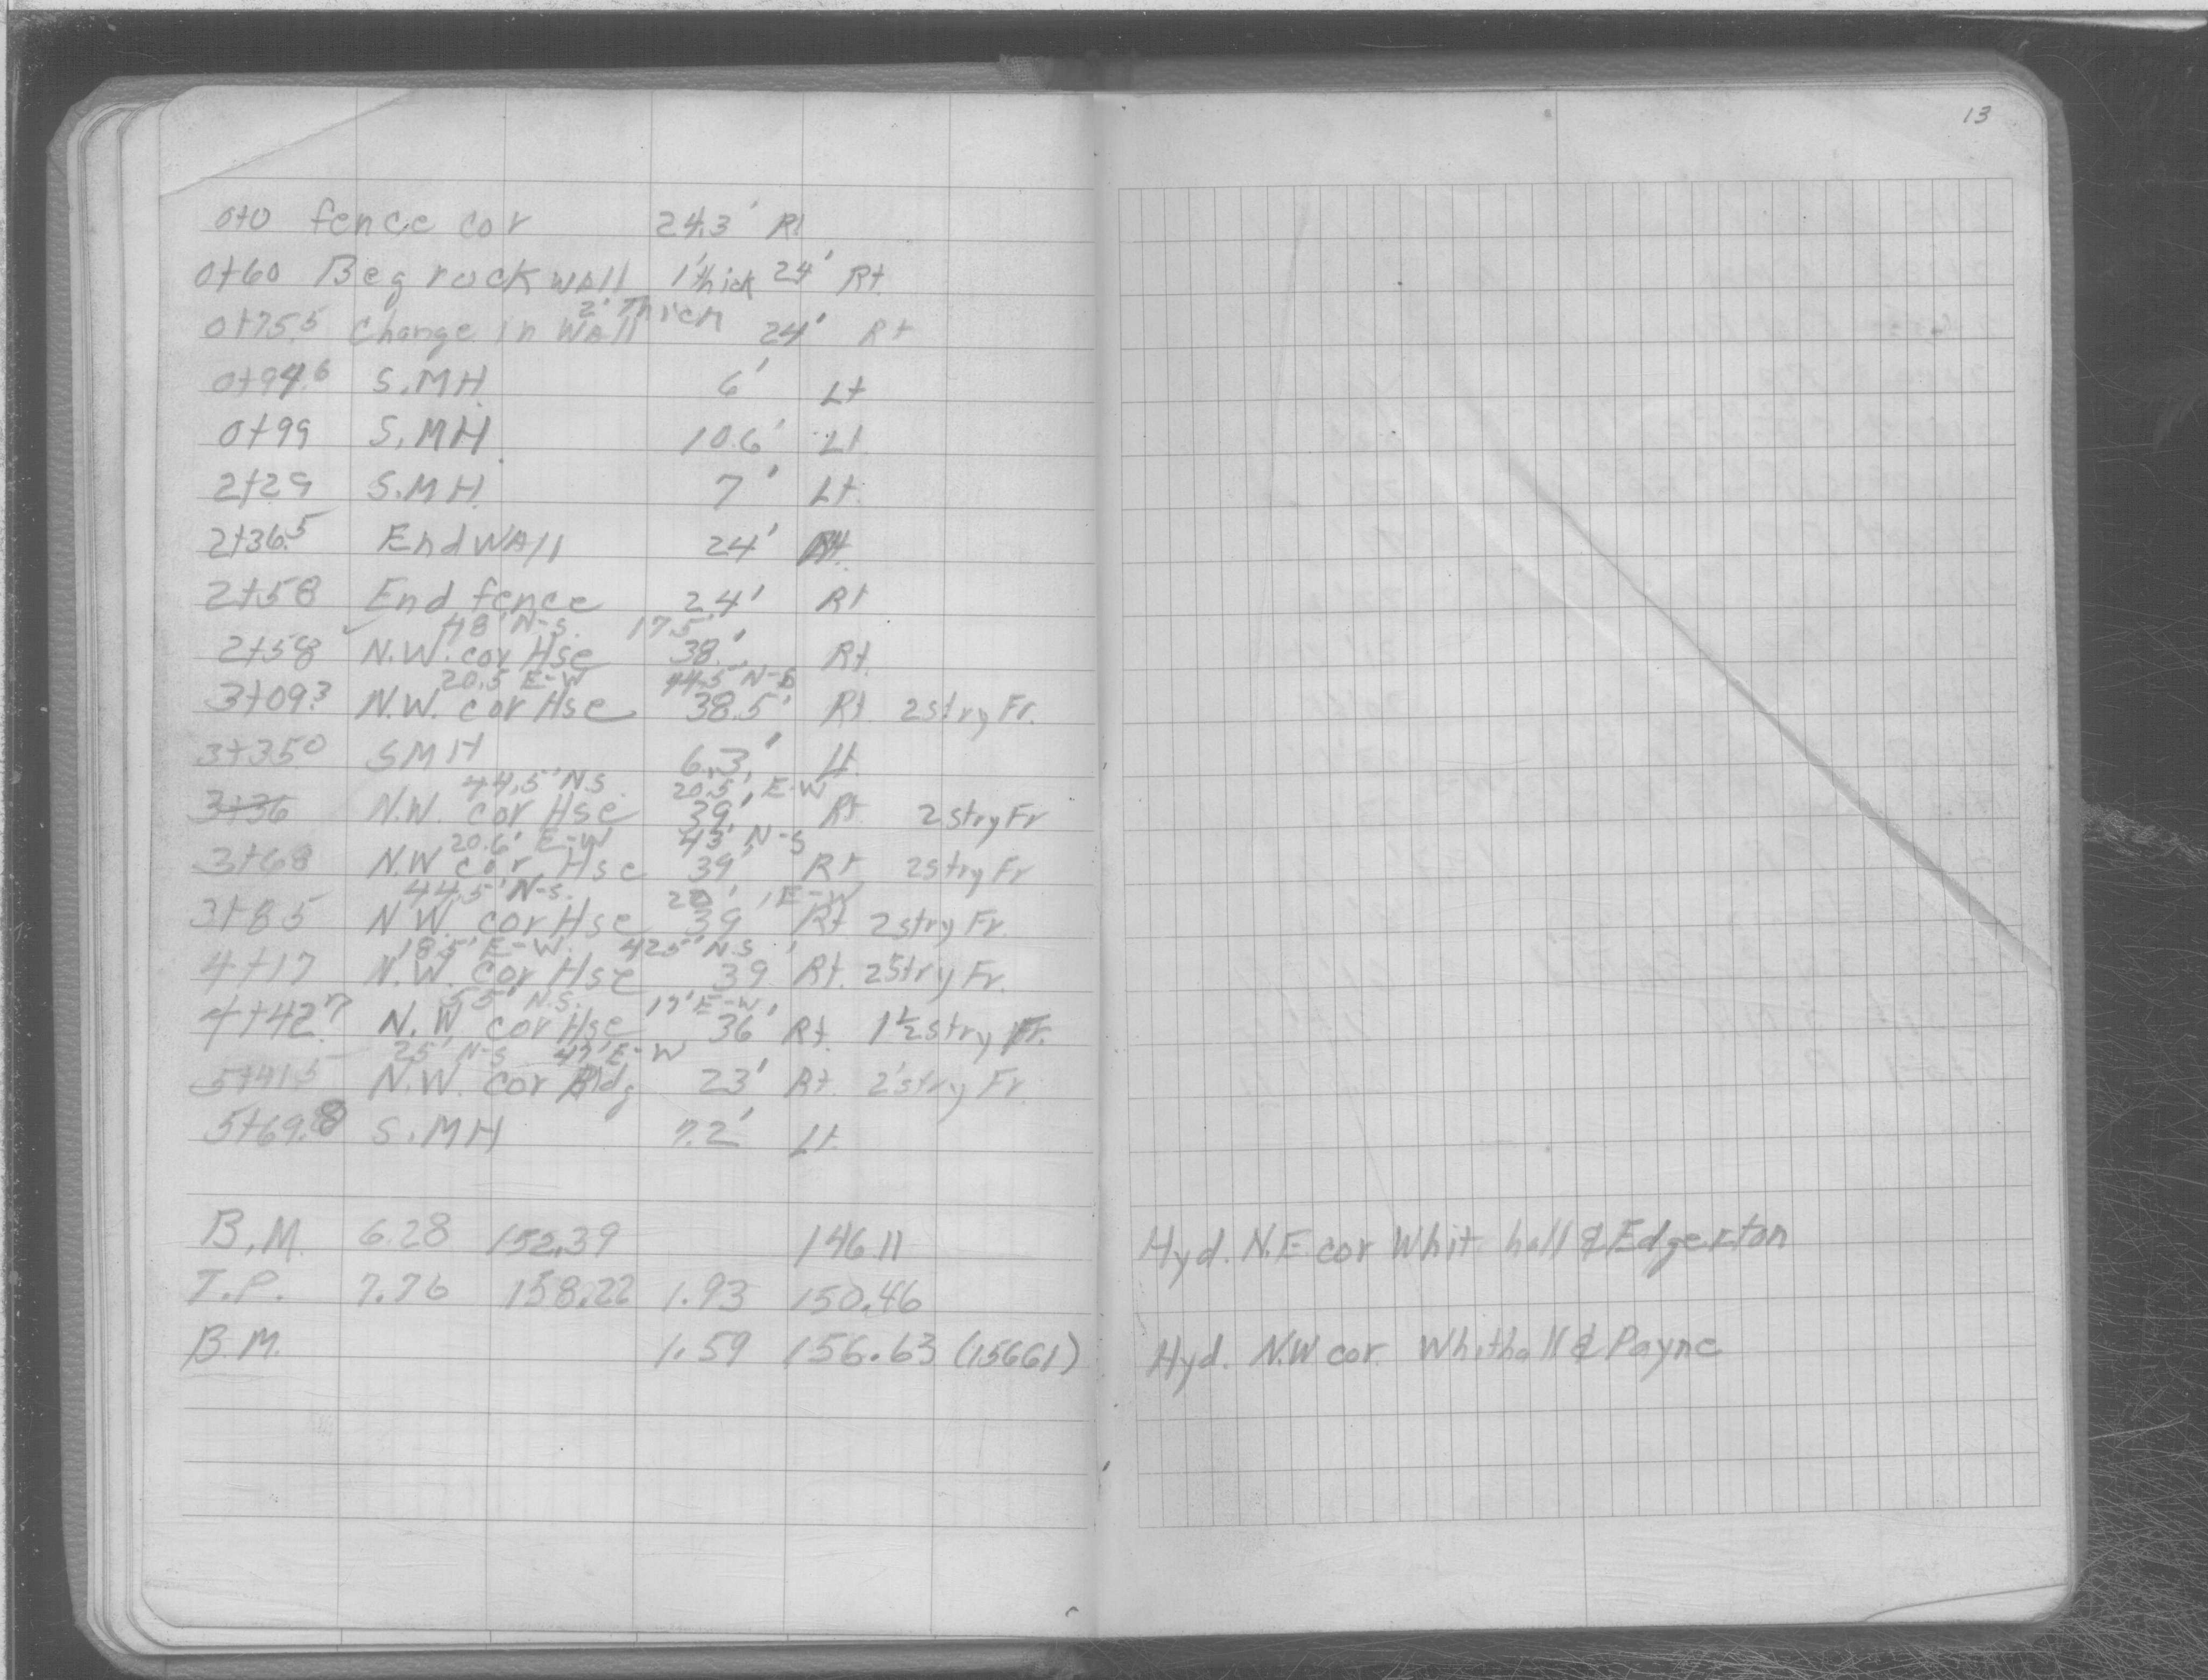 13
0+0 fence cor 24.3' Rt
0+60 Beg rock wall 1' thick 24' Rt.
2' Thick
0+75.5 Change in Wall 24' Rt
0+94.6 S.MH. 6' Lt
0+99 S.MH. 10.6' Lt.
2+29 S.MH. 7' Lt.
2+36.5 End Wall 24' Rt.
2+58 End fence 24' Rt
48' N-S. 17.5'
2+58 N.W. cor Hse 38' Rt.
20.5' E-W 44.5' N-S
3+09.3 N.W. cor Hse 38.5' Rt. 2 stry Fr.
3+35.0 SMH 6.3' Lt.
44.5' N.S. 20.5' E-W
3+36 N.W. cor Hse 39' Rt. 2 stry Fr
20.6' E-W 43' N-S
3+68 N.W cor Hse 39' Rt 2 stry Fr
44.5' N-S. 20' E-W
3+85 N.W. cor Hse 39 Rt 2 stry Fr.
18.5' E-W. 42.5' N.S
4+17 N.W. cor Hse 39' Rt. 2 stry Fr.
55' N.S. 17' E-W
4+42.7 N.W. cor Hse 36' Rt. 1 1/2 stry Fr.
25' N-S 47' E-W
5+41.5 N.W. cor Bldg 23' Rt. 2 stry Fr.
5+69.8 S.MH 7.2' Lt.
B.M. 6.28 152.39 146.11 Hyd. N.E cor Whit hall & Edgerton
T.P. 7.76 158.22 1.93 150.46
B.M. 1.59 156.63 (156.61) Hyd. N.W cor. Whithall & Payne